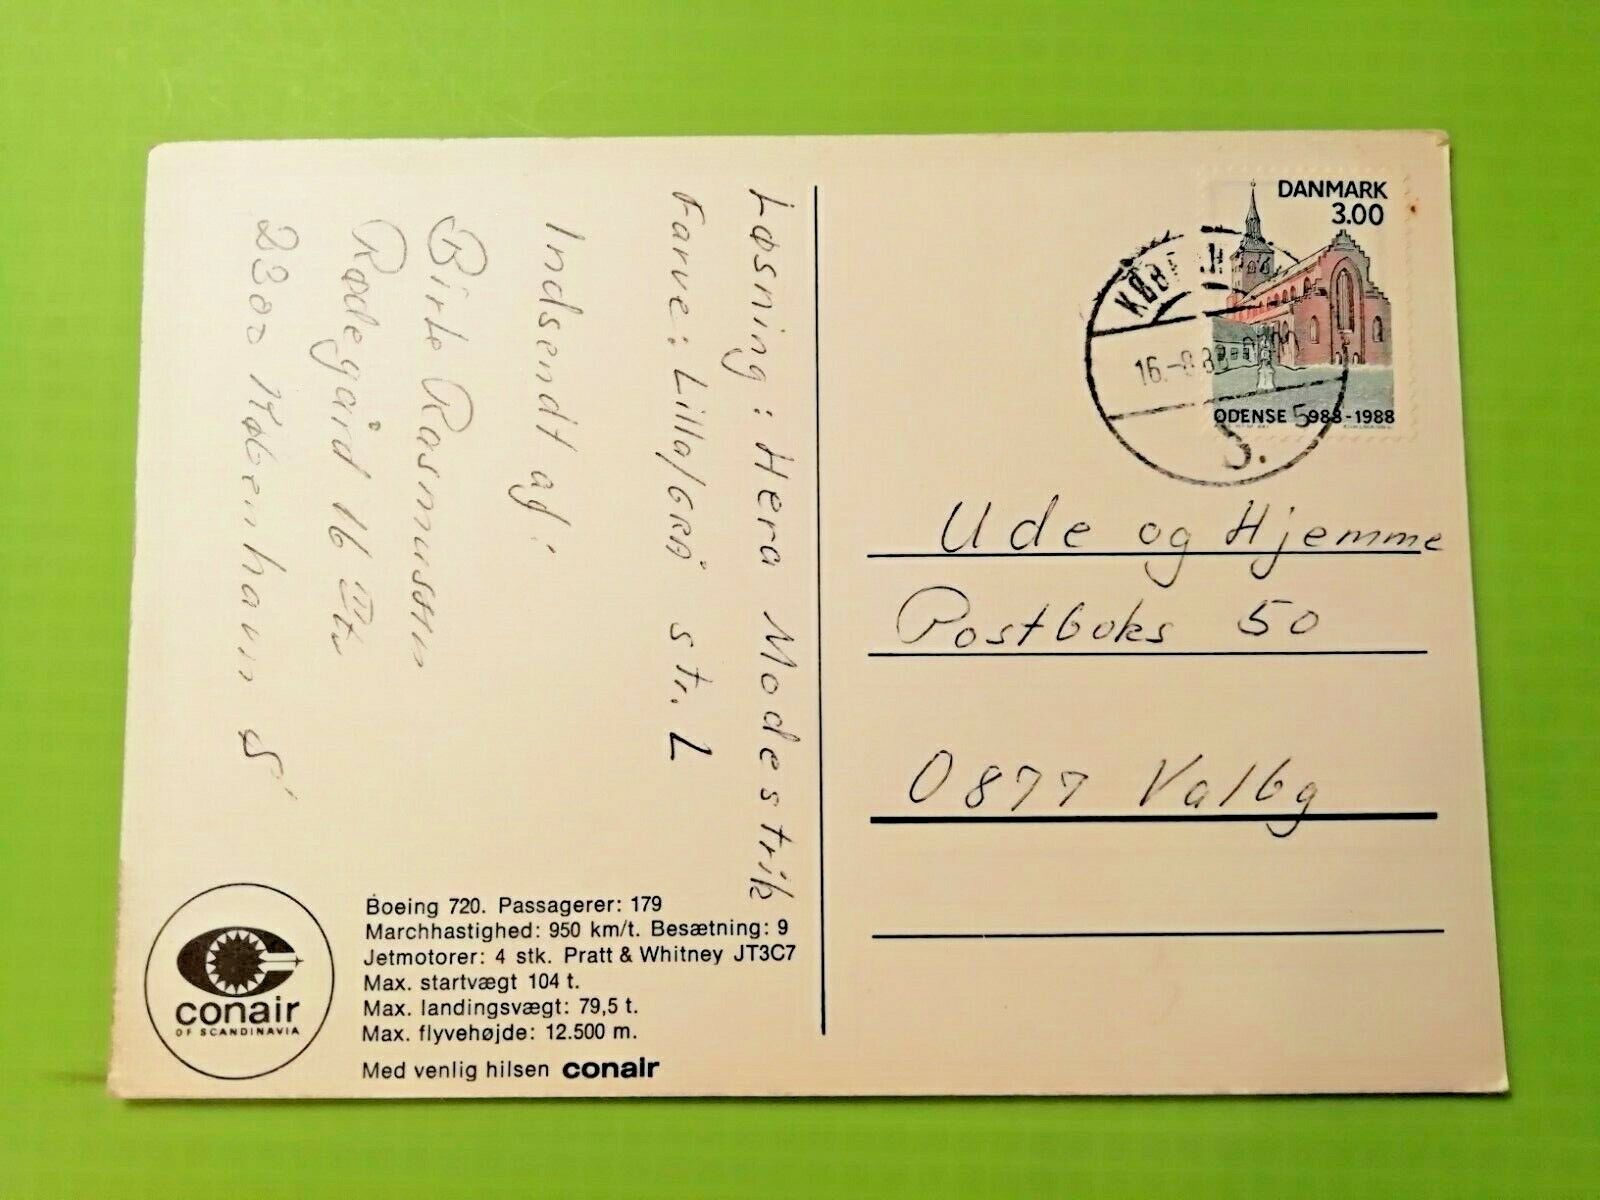 Løsning: Hera Modestrik
Farve: Lilla/GRÅ str. L
Indsendt af:
Birte Rasmussen
Rødegård 16 III tv
2300 København S
conair
OF SCANDINAVIA
Boeing 720. Passagerer: 179
Marchhastighed: 950 km/t. Besætning: 9
Jetmotorer: 4 stk. Pratt & Whitney JT3C7
Max. startvægt 104 t.
Max. landingsvægt: 79,5 t.
Max. flyvehøjde: 12.500 m.
Med venlig hilsen conair
DANMARK
3.00
ODENSE 988-1988
16.-8.88
5
S.
Ude og Hjemme
Postboks 50
0877 Valby